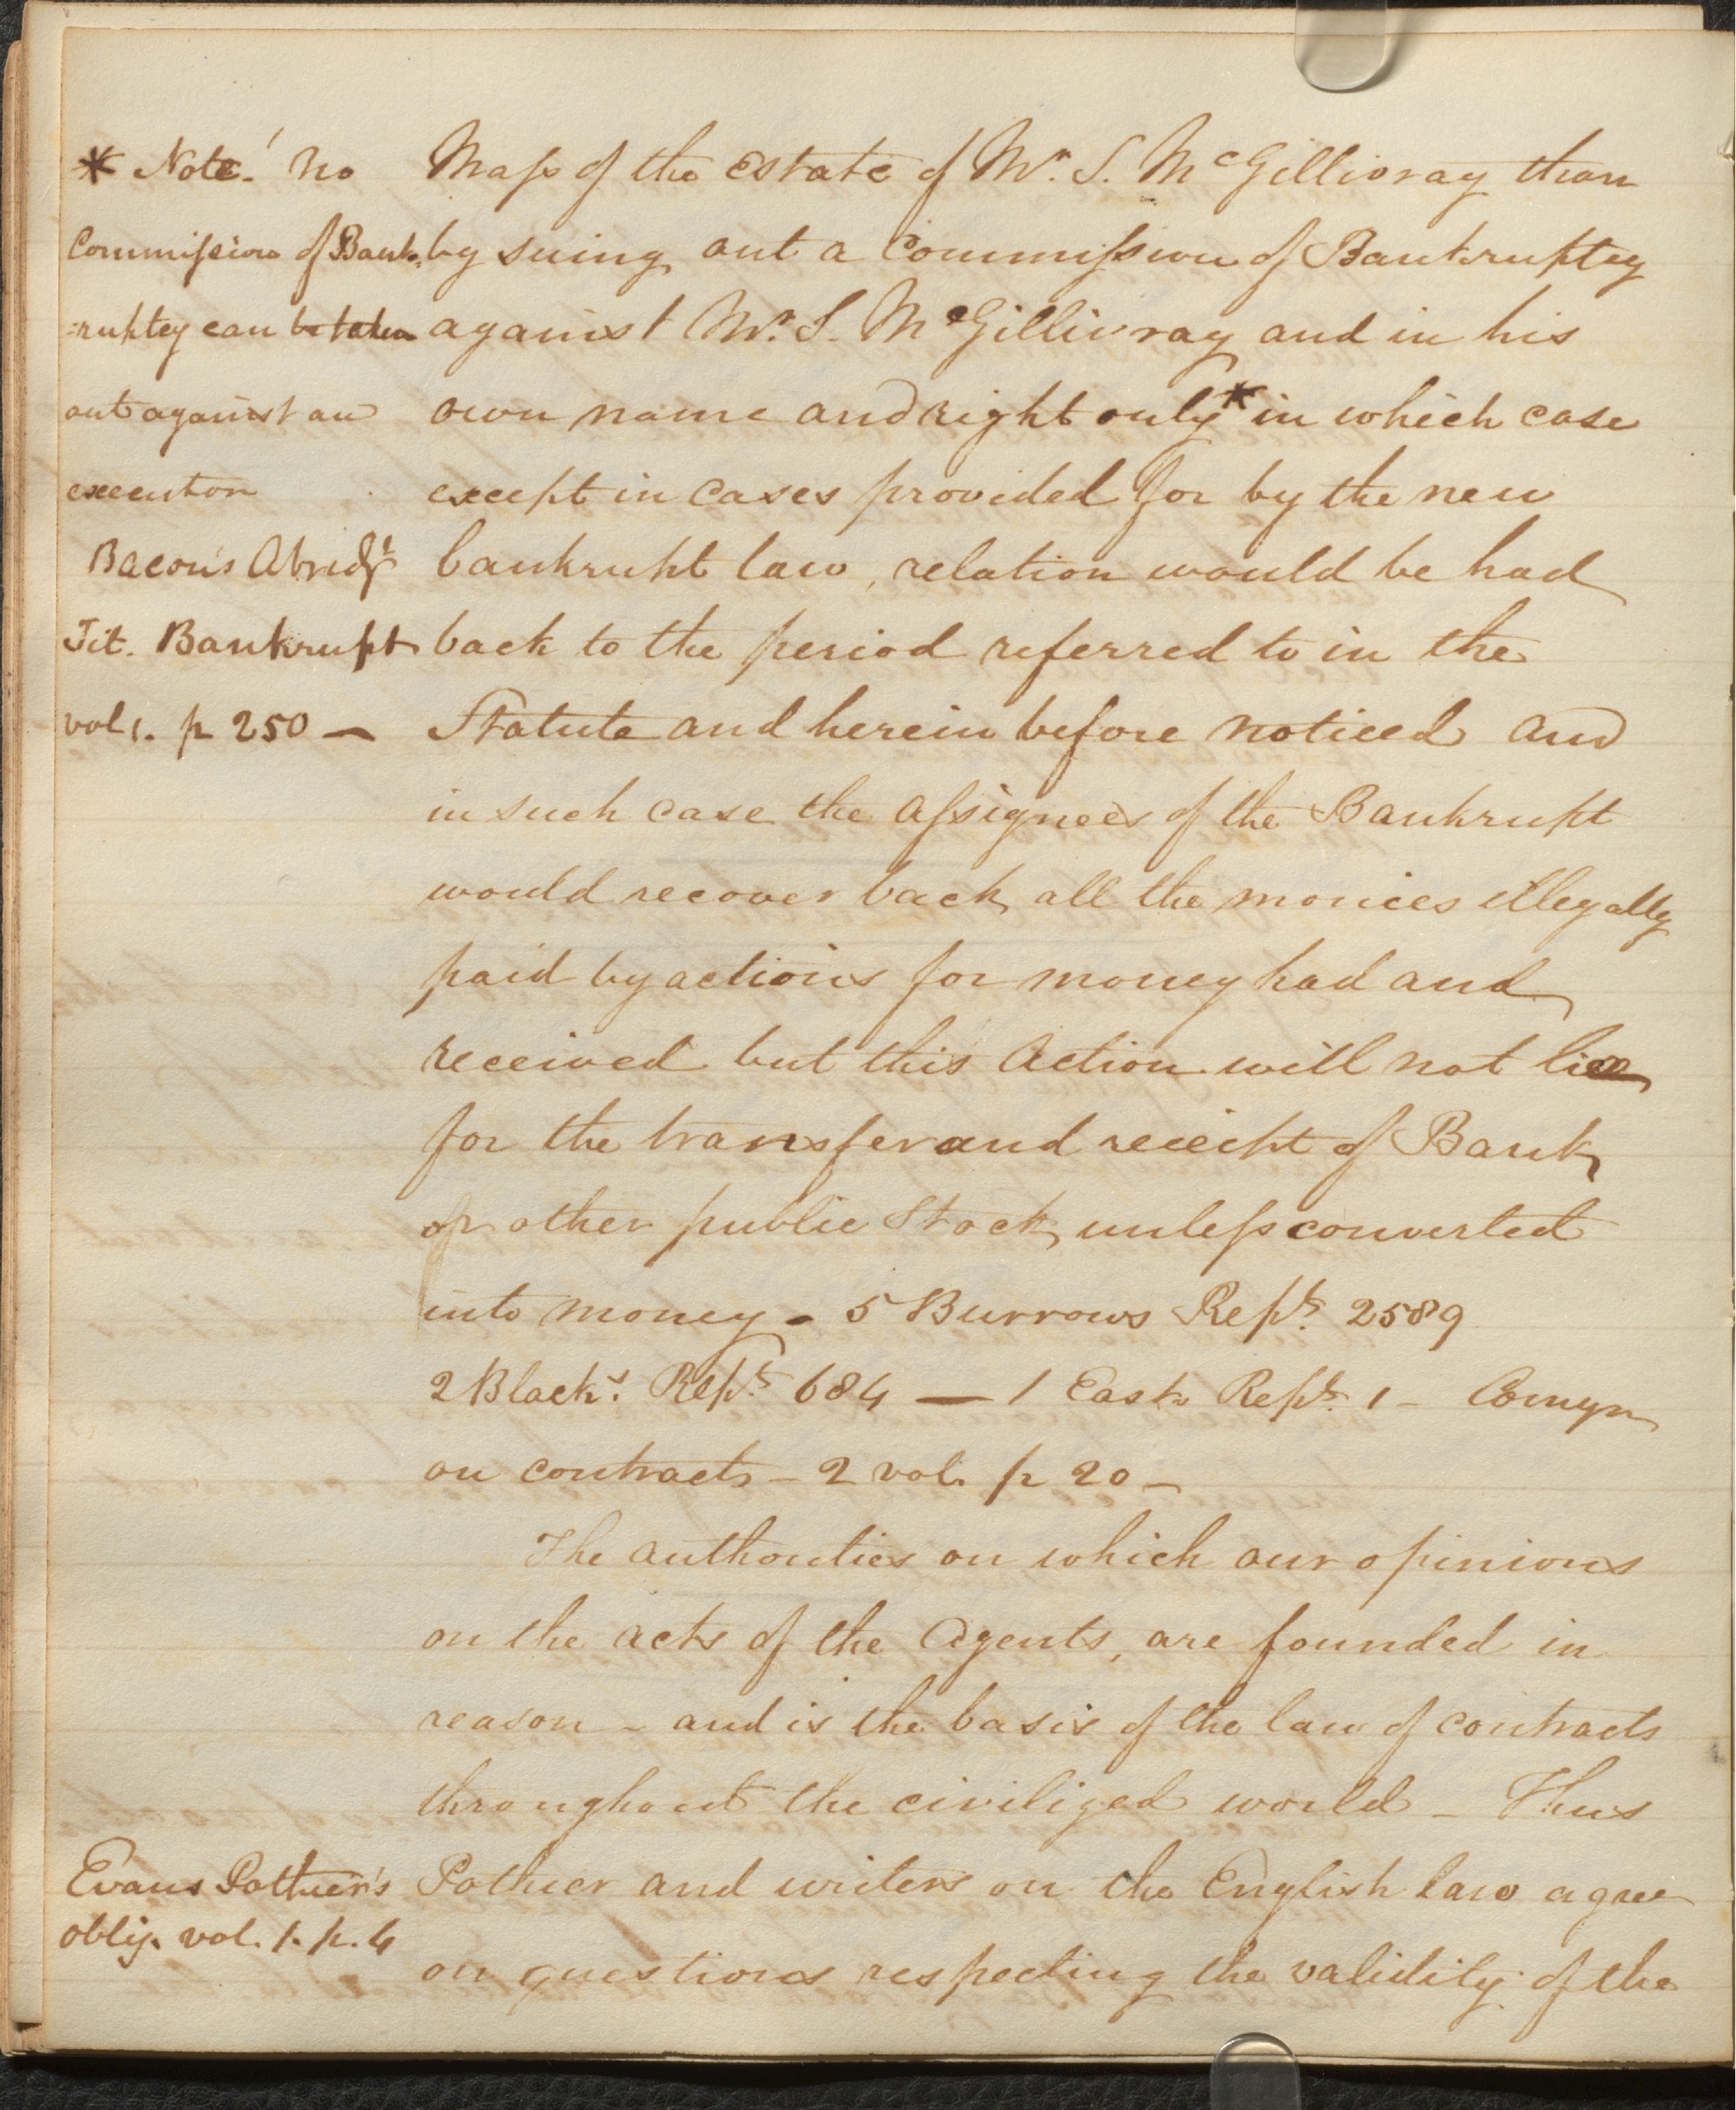 * Note! no
Commission of Bank-
=ruptcy can be taken
out against an
executor
Bacon's Abridgt
Tit. Bankrupt
vol 1. p 250 —
Mass of the estate of Mr. S. McGillivray than
by suing out a Commission of Bankruptcy
against Mr. S. McGillivray and in his
own name and right only * in which case
except in cases provided for by the new
bankrupt law, relation would be had
back to the period referred to in the
Statute and herein before noticed and
in such case the Assignees of the Bankrupt
would recover back all the monies illegally
paid by actions for money had and
received but this Action will not lie
for the transfer and receipt of Bank
or other public Stock, unless converted
into money - 5 Burrows Repts. 2589
2 Blacks. Repts. 684 — 1 East Repts. 1 - Comyn
on contracts - 2 vol. p 20 -
The authorities on which our opinions
on the acts of the Agents, are founded in
reason - and is the basis of the law of contracts
throughout the civilized world - Thus
Evans Pothier's
oblig. vol. 1. p. 4
Pothier and writers on the English law agree
on questions respecting the validity of the